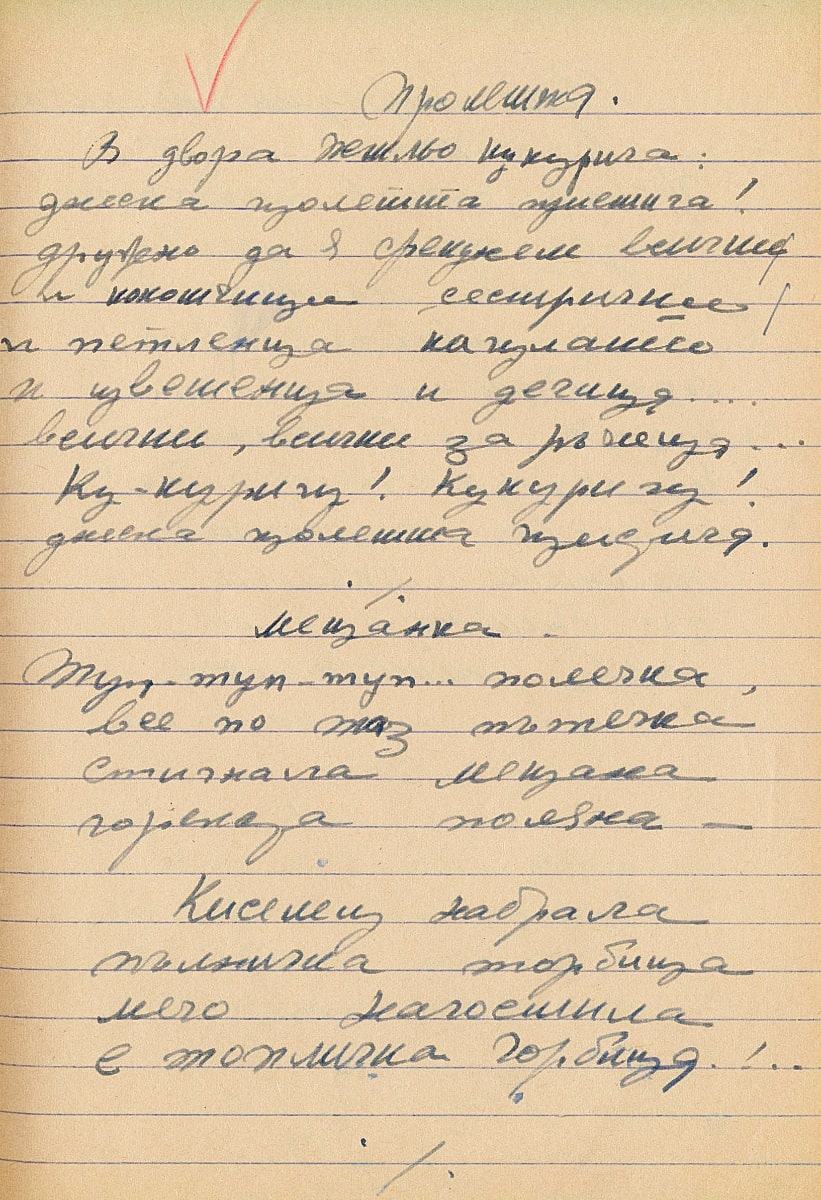 Пролетта.
В двора петльо кукурига:
днеска пролетта пристига!
дружно да я срещнем всички
и кокошчици сестрички
и петленца качулато
и цветенца и дечица....
всички, всички за ръчица...
Ку-куригу! Кукуригу!
днеска пролетта пристига.
Мецанка
Туп-туп-туп... полечка,
все по таз пътечка
стигнала мецана
горска поляна —
Киселец набрала
пълничка торбица
мечо нагостила
с топличка чорбица.!..